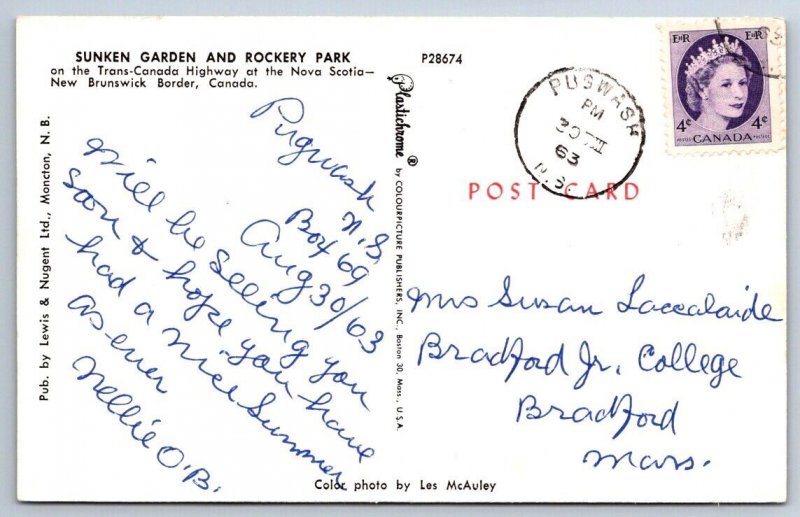 SUNKEN GARDEN AND ROCKERY PARK
on the Trans-Canada Highway at the Nova Scotia—
New Brunswick Border, Canada.
P28674
Pub. by Lewis & Nugent Ltd., Moncton, N. B.
Pugwash
N.S.
Box 69
Aug 30/63
Will be seeing you
soon & hope you have
had a nice Summer
as ever
Nellie O.B.
Plastichrome ® by COLOURPICTURE PUBLISHERS, INC., Boston 30, Mass., U.S.A.
Color photo by Les McAuley
PUGWASH
PM
30 VIII
63
N.S.
EIIR EIIR
4¢ 4¢
CANADA
POSTES POSTAGE
POST CARD
Mrs Susan Laccalaide
Bradford Jr. College
Bradford
Mass.